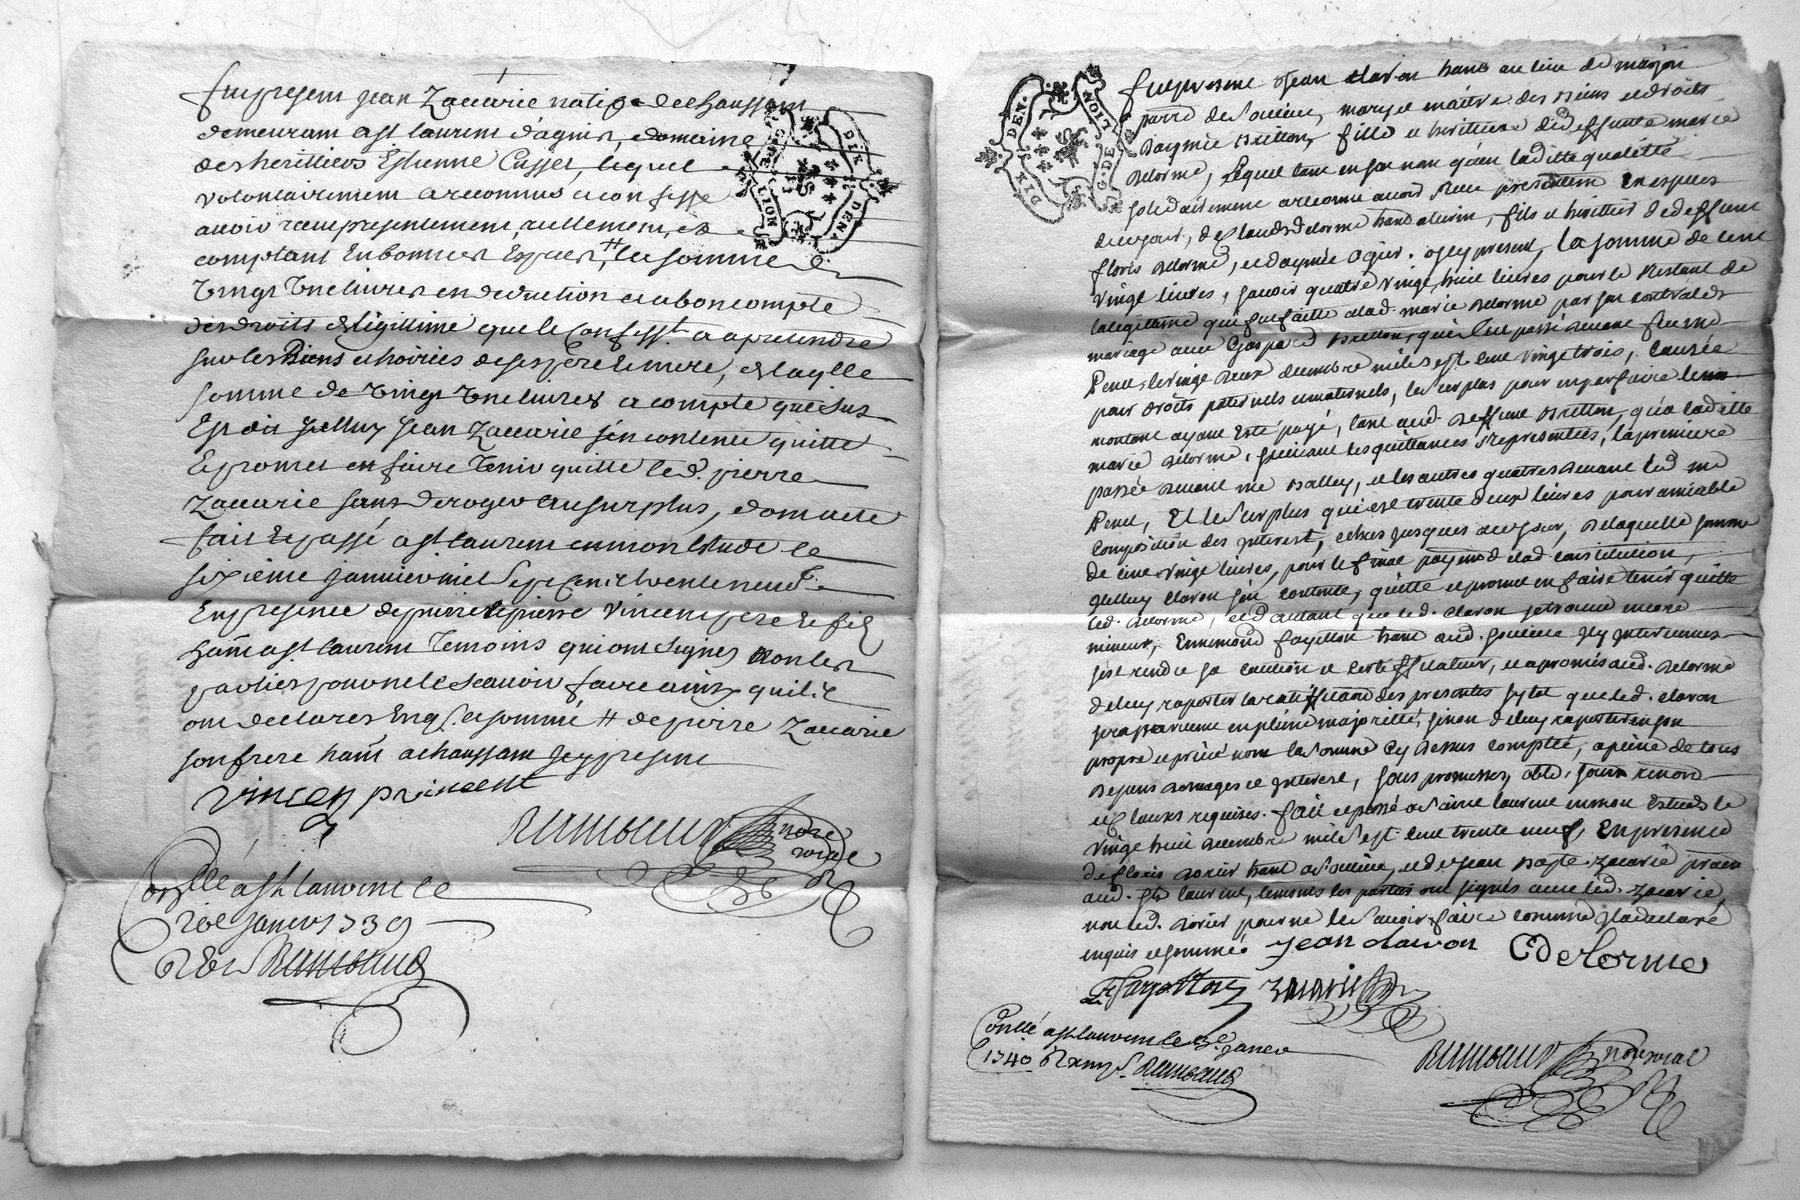 fut present Jean Zacarie natif de chaussam
demeurant a st laurent d'agnier, domaine
des heritiers Estienne Cusset, lequel
volontairement a reconnu et confessé
avoir reçu presentement, reellement, et
comptant En bonnes Especes, # la somme de
vingt une livres en deduction et a bon compte
des droits de legitime que le Confesst. a a pretendre
sur les Biens et hoiries de ses père et mere, de laqlle
somme de vingt une livres a compte que sus
Est dit Jcelluy Jean Zacarie s'en contente quitte
Et promet en faire tenir quitte led. pierre
Zacarie sans deroger au surplus, dont acte
fait Et passé a st laurent en mon Etude le
sixieme janvier mil sept cent trente neuf
En presence de pierre et pierre Vincent pere et fils
hant a st laurent temoins qui ont signés non les
parties pour ne le scavoir faire ainsy qu'ils
ont declarés Enq. et sommé # de pierre Zacarie
son frere hant a chaussam Jcy present
vincent p vincent
nore
roial
Conllé a st laurent le
janer 1739
DIX DEN.
G. DE LION
fut present Jean claron hant au lieu de
parre de Soucieu, mary et maitre des biens et droits
Daymée Bretton, fille et heritiere de deffunte marie
Delorme, lequel tant en son nom qu'en laditte qualitté
solidairement a reconnu avoir reçu presentemt en especes
de ce jour, de Claude Delorme hant , fils et heritier de deffunt
floris Delorme, et daymée ogier. Jcy present, la somme de cent
vingt livres, savoir quatre vingt huit livres pour le Restant de
la legitime qui fut faitte a lad. marie Delorme par son contrat de
mariage avec Gaspard Bretton, que l'un passé devant feu me
Penet, le vingt deux decembre mil sept cent vingt trois,
pour droits paternels et maternels, le surplus pour en parfaire le
montant ayant esté payé, tant aud. deffunt Bretton, qu'a laditte
marie Delorme, suivant les quittances representées, la premiere
passée devant me Balley, et les autres quatres devant led. me
Penet, Et le surplus qui est trente deux livres pour amiable
composition des Jnterest, echus jusques a ce jour, De laquelle somme
de cent vingt livres, pour le final payemt de lad. constitution,
Jcelluy claron s'en contente, quitte et promet en faire tenir quitte
led. Delorme, et d'autant que led. claron se trouve encore
mineur, Ennemond fayollon hant aud. soucieu Jcy Jntervenu
s'est rendu sa caution et certifficateur, et a promis aud. Delorme
de luy raporter la ratiffication des presentes sytot que led. claron
sera parvenu en pleine majorité, sinon de luy raporter en son
propre et privé nom la somme cy Dessus comptée, a peine de tous
depens domages et Jnterest, sous promesses, oblig. soum. renon.
et clauses requises. fait et passé a Saint laurent en mon Etude le
vingt huit decembre mil sept cent trente neuf, En presence
de floris Borier hant a Soucieu, et de Jean Bapte. Zacarie praen
aud. St. laurent, temoins les parties ont signés avec led. Zacarie,
non led. Borier pour ne le scavoir faire comme Jl a declaré
enquis et sommé Jean clairon C delorme
E fayollon zacarie
Conllé a st laurent le 3e. janer
1740
nore roial